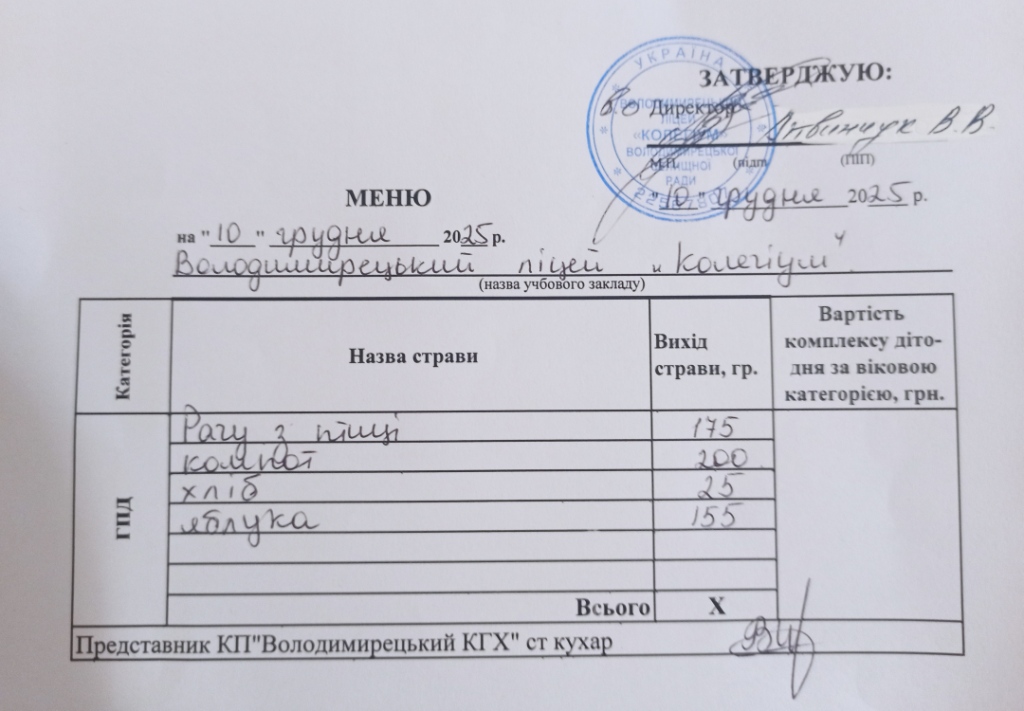 ЗАТВЕРДЖУЮ:
В.О Директор Литвинчук В.В.
М.П. (підп (ПІП)
"10" грудня 2025 р.
УКРАЇНА
ВОЛОДИМИРЕЦЬКИЙ
ЛІЦЕЙ
«КОЛЕГІУМ»
ВОЛОДИМИРЕЦЬКОЇ
СЕЛИЩНОЇ
РАДИ
МЕНЮ
на "10" грудня 2025 р.
Володимирецький ліцей "Колегіум"
(назва учбового закладу)
Категорія
Назва страви
Вихід
страви, гр.
Вартість
комплексу діто-
дня за віковою
категорією, грн.
ГПД
Рагу з птиці 175
компот 200
хліб 25
яблука 155
Всього Х
Представник КП"Володимирецький КГХ" ст кухар